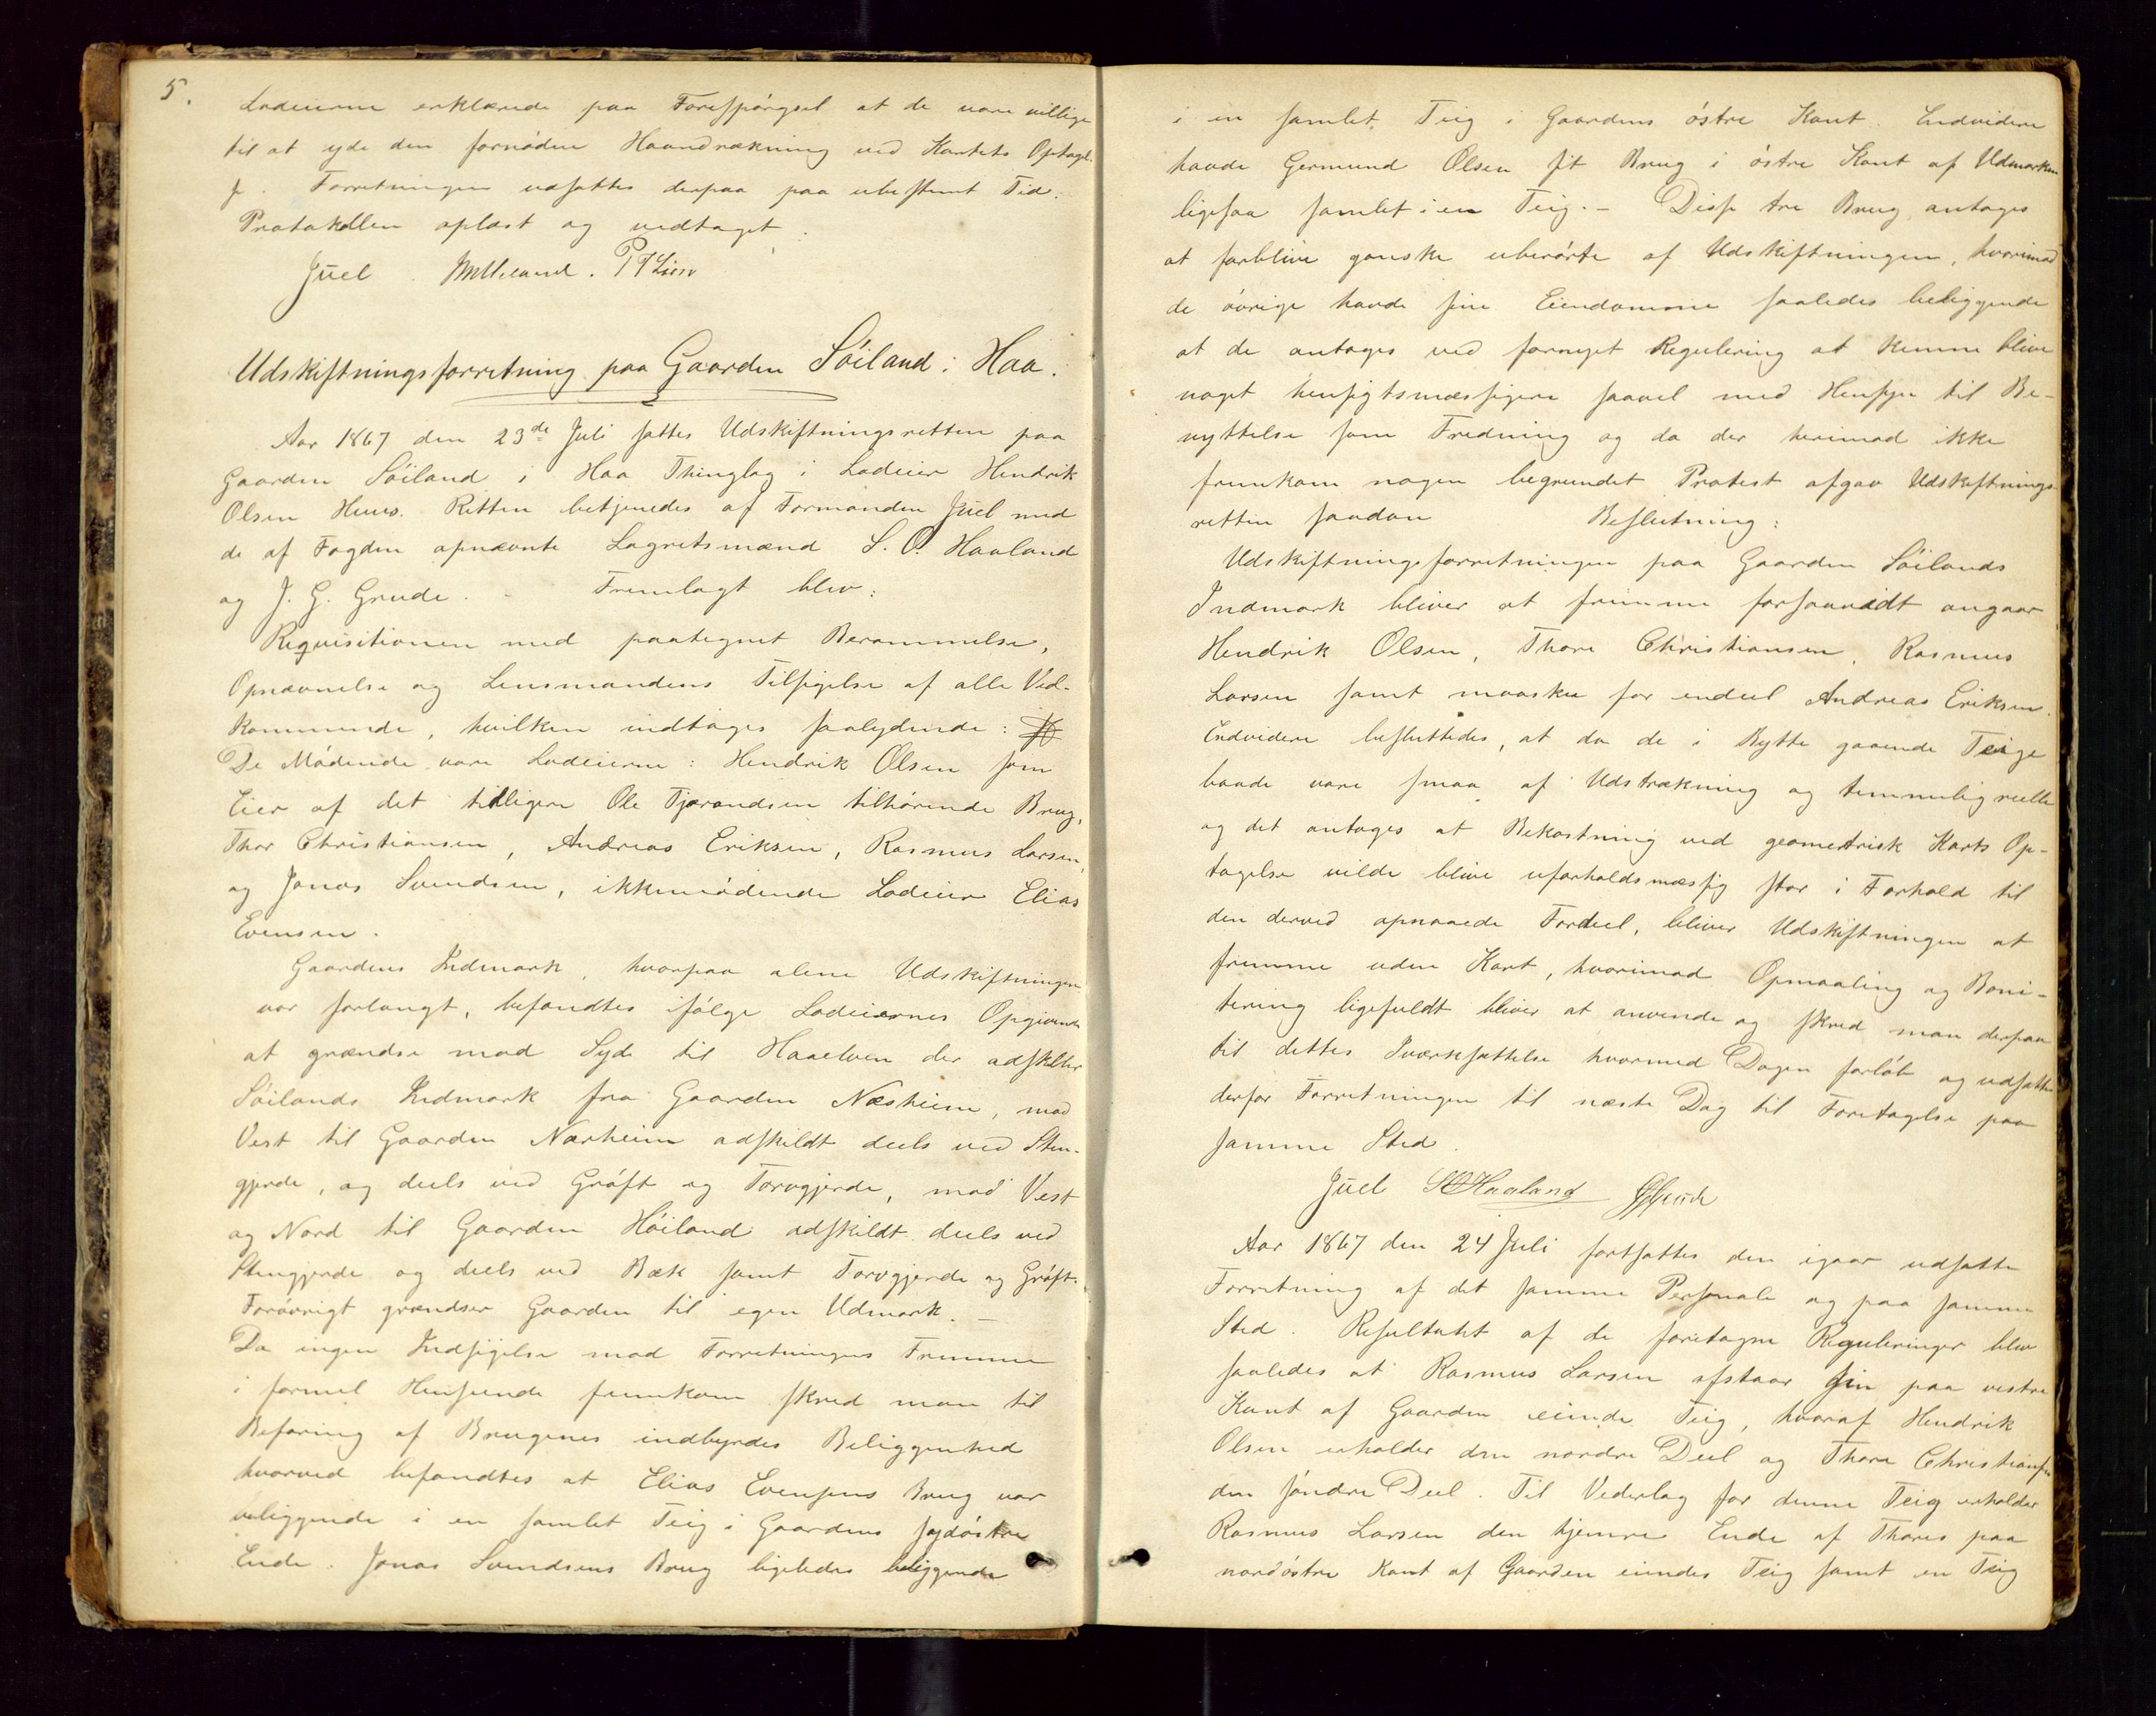 5.
Lodeierne erklærede paa Forespørgsel at de vare villige
til at yde den fornødne Haandrækning ved Kartets Optagel-
se. Forretningen udsattes derpaa paa ubestemt Tid.
Protokollen oplæst og vedtaget.
Juel
Udskiftningsforretning paa Gaarden Söiland i Haa.
Aar 1867 den 23de Juli sattes Udskiftningsretten paa
Gaarden Söiland i Haa Thinglag i Lodeier Hendrik
Olsen Huus. Retten betjenedes af Formanden Juel med
de af Fogden opnævnte Lagretsmænd S. O. Haaland
og J. G. Grude. - Fremlagt blev:
Requisitionen med paategnet Berammelse,
Opnævnelse og Lensmandens Tilsigelse af alle Ved-
kommende, hvilken indtages saalydende:
De Mødende vare Lodeierne: Hendrik Olsen som
Eier af det tidligere Ole Tjerandsen tilhørende Brug,
Thor Christiansen, Andreas Eriksen, Rasmus Larsen,
og Jonas Svendsen, ikkemødende Lodeier Elias
Evensen.
Gaardens Indmark, hvorpaa alene Udskiftningen
var forlangt, befandtes ifølge Lodeiernes Opgivende
at grændse mod Syd til Haaelven der adskiller
Söilands Indmark fra Gaarden Næsheim, mod
Vest til Gaarden Nærheim adskildt deels ved Sten-
gjerde, og deels ved Grøft og Torvgjerde, mod Vest
og Nord til Gaarden Høiland adskildt deels ved
Stengjerde og deels ved Bæk samt Torvgjerde og Grøft.
Forøvrigt grændser Gaarden til egen Udmark. -
Da ingen Indsigelse mod Forretningens Fremme
i formel Henseende fremkom skred man til
Befaring af Brugenes indbyrdes Beliggenhed
hvorved befandtes at Elias Evensens Brug var
beliggende i en samlet Teig i Gaardens sydøstre
Ende. Jonas Svendsens Brug ligeledes beliggende
i en samlet Teig i Gaardens østre Kant. Endvidere
havde Germund Olsen sit Brug i østre Kant af Udmarken
ligesaa samlet i en Teig. - Disse tre Brug antages
at forblive ganske uberørte af Udskiftningen, hvorimod
de øvrige havde sine Eiendomme saaledes beliggende
at de antages ved fornyet Regulering at kunne blive
noget hensigtsmæssigere saavel med Hensyn til Be-
nyttelse som Fredning og da der herimod ikke
fremkom nogen begrundet Protest afgav Udskiftnings-
retten saadan Beslutning:
Udskiftningsforretningen paa Gaarden Söilands
Indmark bliver at fremme forsaavidt angaar
Hendrik Olsen, Thore Christiansen, Rasmus
Larsen samt maaskee for endeel Andreas Eriksen.
Endvidere besluttedes, at da de i Bytte gaaende Teige
baade vare smaa af Udstrækning og temmelig reelle
og det antages at Bekostning ved geometrisk Karts Op-
tagelse vilde blive uforholdsmæssig stor i Forhold til
den derved opnaaede Fordeel, bliver Udskiftningen at
fremme uden Kart, hvorimod Opmaaling og Boni-
tering ligefuldt bliver at anvende og skred man derpaa
til dettes Iværksættelse hvormed Dagen forløb og udsattes
derfor Forretningen til næste Dag til Foretagelse paa
samme Sted.
Juel SOHaaland JGGrude
Aar 1867 den 24 Juli fortsattes den igaar udsatte
Forretning af det samme Personale og paa samme
Sted. Resultatet af de foretagne Reguleringer blev
saaledes at Rasmus Larsen afstaar sin paa vestre
Kant af Gaarden eiende Teig, hvoraf Hendrik
Olsen erholder den nordre Deel og Thore Christiansen
den søndre Deel. Til Vederlag for denne Teig erholder
Rasmus Larsen den hjemre Ende af Thores paa
nordøstre Kant af Gaarden eiendes Teig samt en Teig